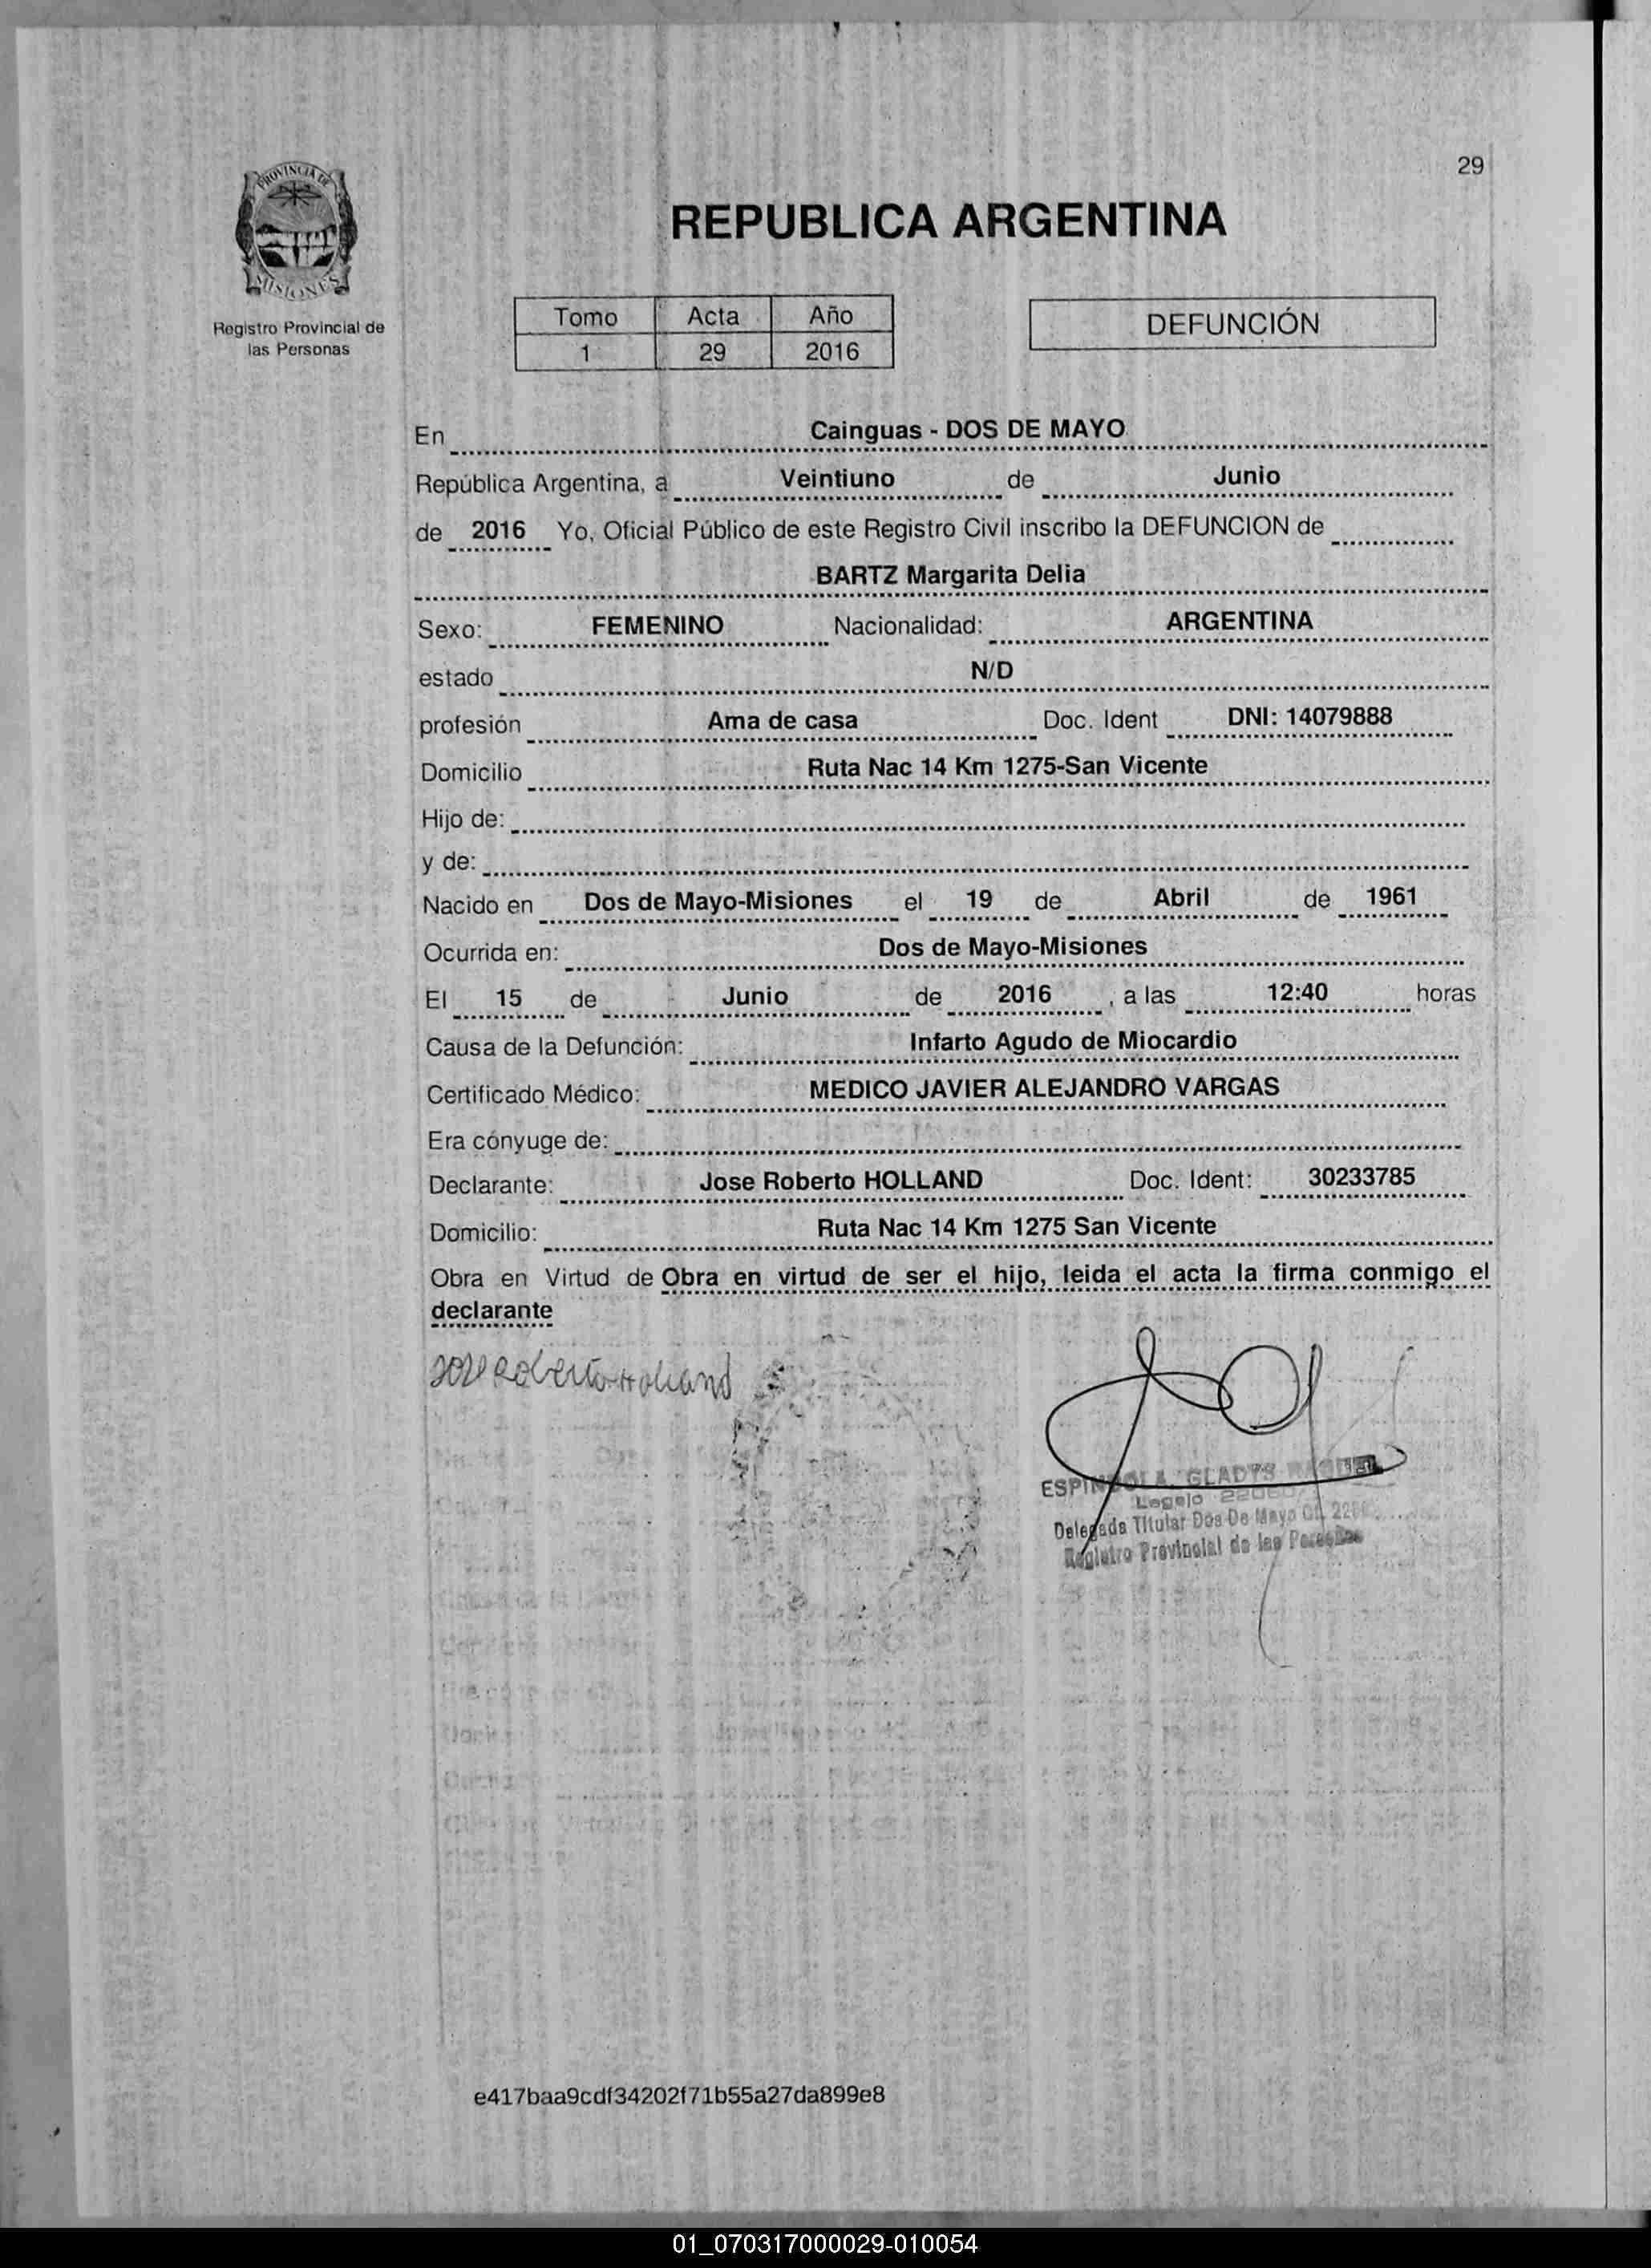 29
PROVINCIA DE
MISIONES
Registro Provincial de
las Personas
REPUBLICA ARGENTINA
Tomo Acta Año
1 29 2016
DEFUNCIÓN
En Cainguas - DOS DE MAYO
República Argentina, a Veintiuno de Junio
de 2016 Yo, Oficial Público de este Registro Civil inscribo la DEFUNCION de
BARTZ Margarita Delia
Sexo: FEMENINO Nacionalidad: ARGENTINA
estado N/D
profesión Ama de casa Doc. Ident DNI: 14079888
Domicilio Ruta Nac 14 Km 1275-San Vicente
Hijo de:
y de:
Nacido en Dos de Mayo-Misiones el 19 de Abril de 1961
Ocurrida en: Dos de Mayo-Misiones
El 15 de Junio de 2016 , a las 12:40 horas
Causa de la Defunción: Infarto Agudo de Miocardio
Certificado Médico: MEDICO JAVIER ALEJANDRO VARGAS
Era cónyuge de:
Declarante: Jose Roberto HOLLAND Doc. Ident: 30233785
Domicilio: Ruta Nac 14 Km 1275 San Vicente
Obra en Virtud de Obra en virtud de ser el hijo, leida el acta la firma conmigo el
declarante
Jose Roberto Holland
ESPINDOLA GLADYS
Legajo
Delegada Titular Dos De Mayo
Registro Provincial de las Personas
e417baa9cdf34202f71b55a27da899e8
01_070317000029-010054